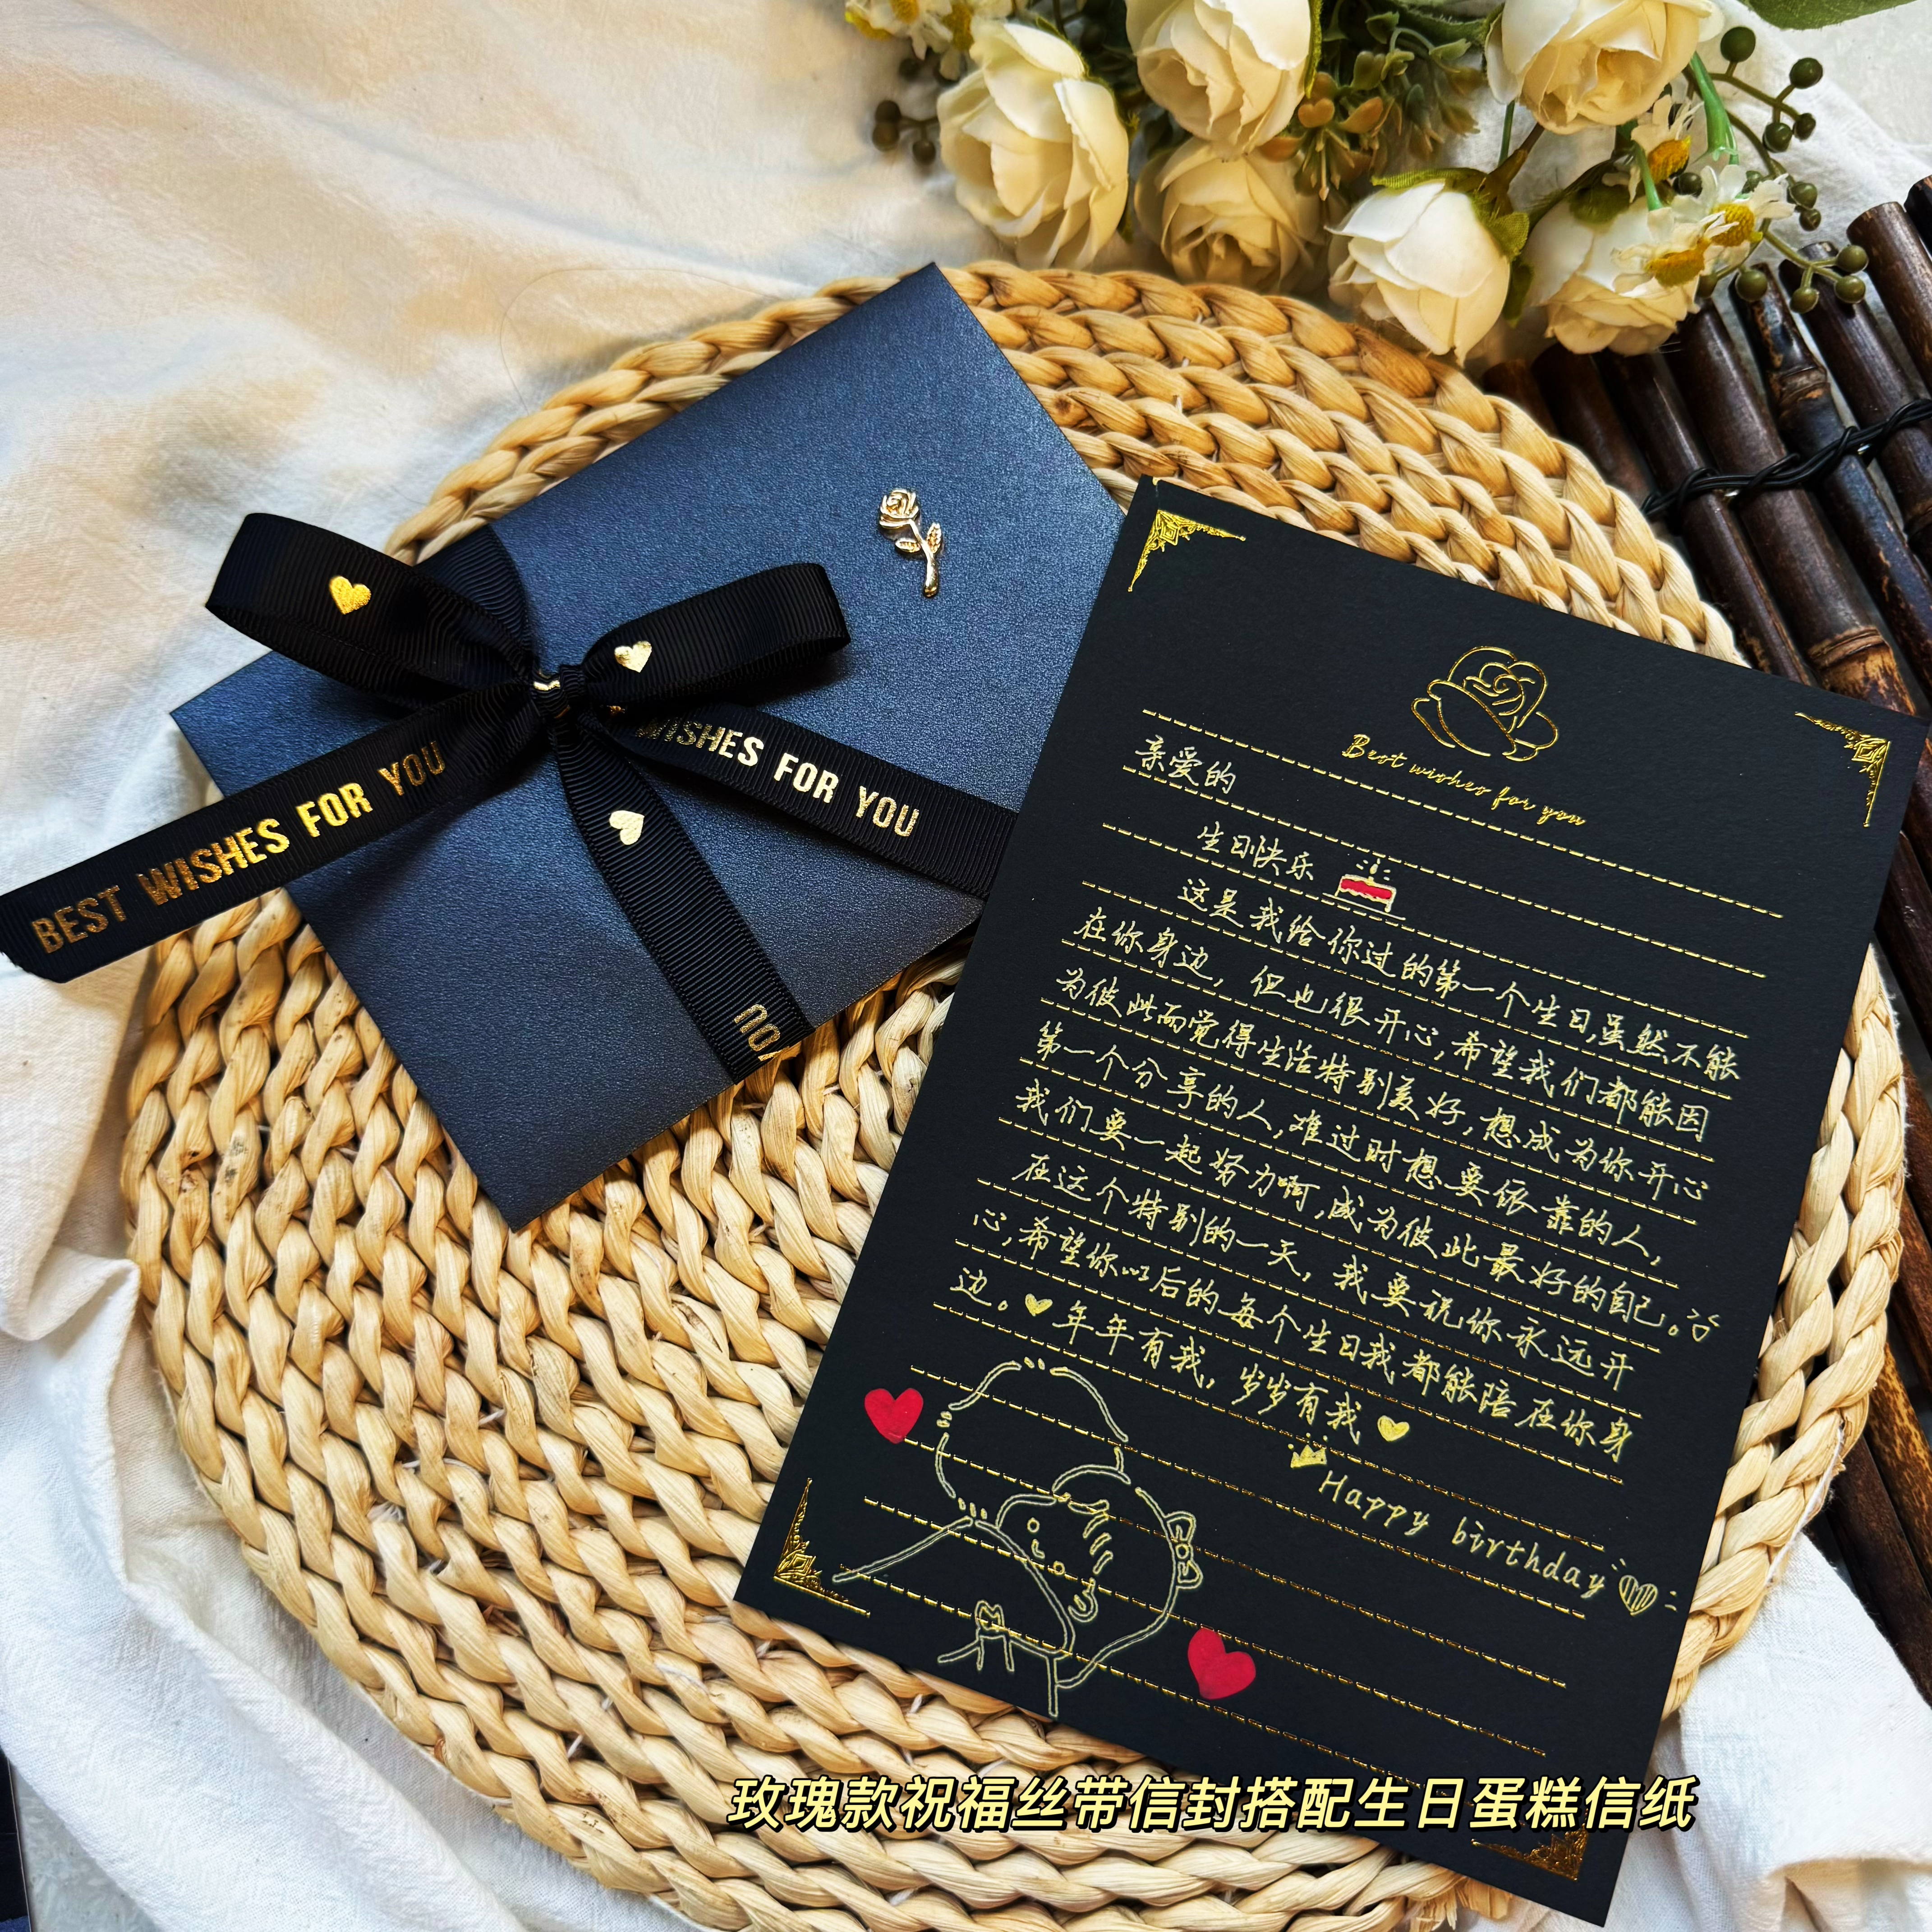 BEST WISHES FOR YOU
WISHES FOR YOU
YOU
Best wishes for you
亲爱的
生日快乐
这是我给你过的第一个生日,虽然不能
在你身边,但也很开心,希望我们都能因
为彼此而觉得生活特别美好,想成为你开心
第一个分享的人,难过时想要依靠的人,
我们要一起努力啊,成为彼此最好的自己。
在这个特别的一天,我要说你永远开
心,希望你以后的每个生日我都能陪在你身
边。年年有我,岁岁有我
Happy birthday
玫瑰款祝福丝带信封搭配生日蛋糕信纸